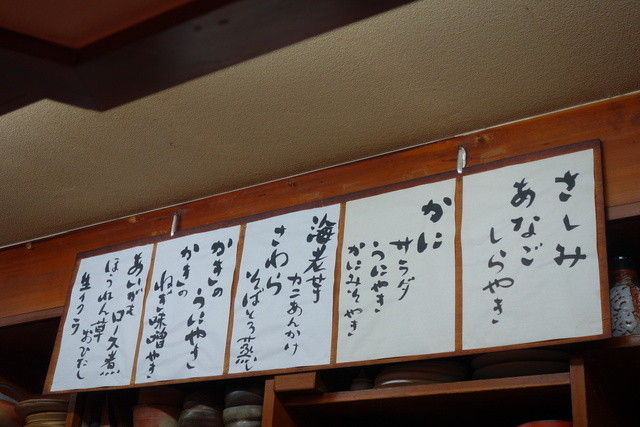 さしみ
あなご
しらやき
かに
サラダ
うにやき
かにみそやき
海老芋
カニあんかけ
さわら
そばとろ蒸し
かきの
うにやき
かきの
ねぎ味噌やき
あいがも
ロース煮
ほうれん草
おひたし
生イクラ